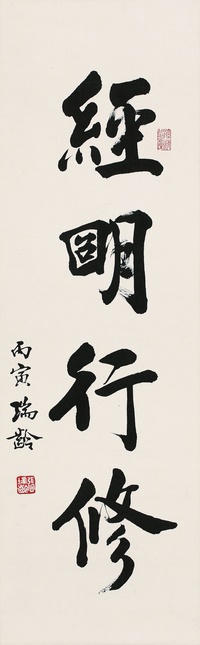 經明行修
丙寅 瑞齡